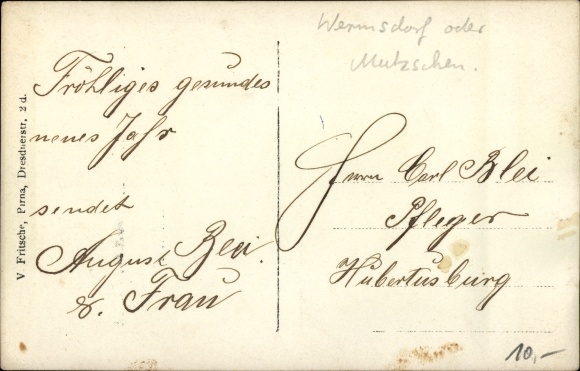 Wermsdorf oder
Mutzschen.
Fröhliges gesundes
neues Jahr
sendet
August Blei.
& Frau
Herrn Carl Blei
Pfleger
Hubertusburg
V. Fritsche, Pirna, Dresdnerstr. 2 d.
10,-